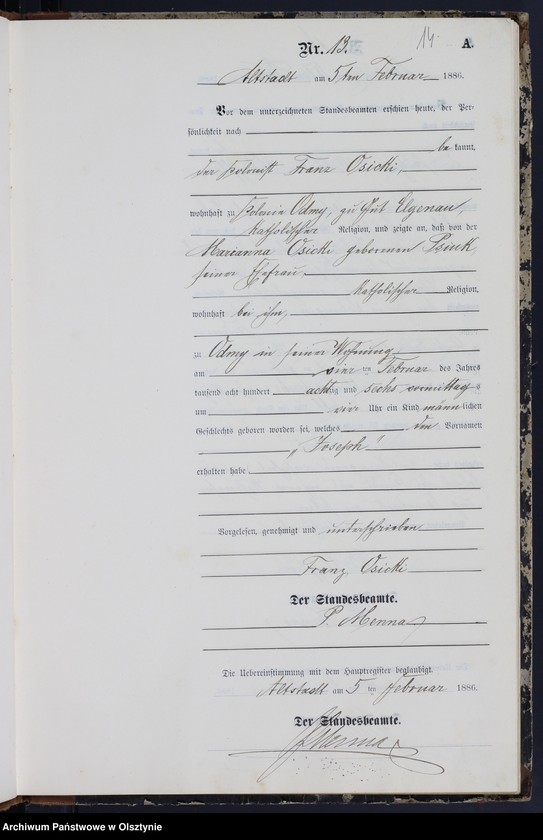 14.
Nr. 13. A.
Altstadt am 5ten Februar 1886.
Vor dem unterzeichneten Standesbeamten erschien heute, der Per-
sönlichkeit nach
be kannt,
der Kolonist Franz Osicki,
wohnhaft zu Kolonie Odmy, zu Gut Elgenau,
katholischer Religion, und zeigte an, daß von der
Marianna Osicki geborenen
seiner Ehefrau,
katholischer Religion,
wohnhaft bei ihm,
zu Odmy in seiner Wohnung
am vier ten Februar des Jahres
tausend acht hundert achtzig und sechs vormittag s
um vier Uhr ein Kind männ lichen
Geschlechts geboren worden sei, welches den Vornamen
„Joseph"
erhalten habe
Vorgelesen, genehmigt und unterschrieben
Franz Osicki
Der Standesbeamte.
P. Menna
Die Uebereinstimmung mit dem Hauptregister beglaubigt.
Altstadt am 5 ten Februar 1886.
Der Standesbeamte.
Menna
Archiwum Państwowe w Olsztynie